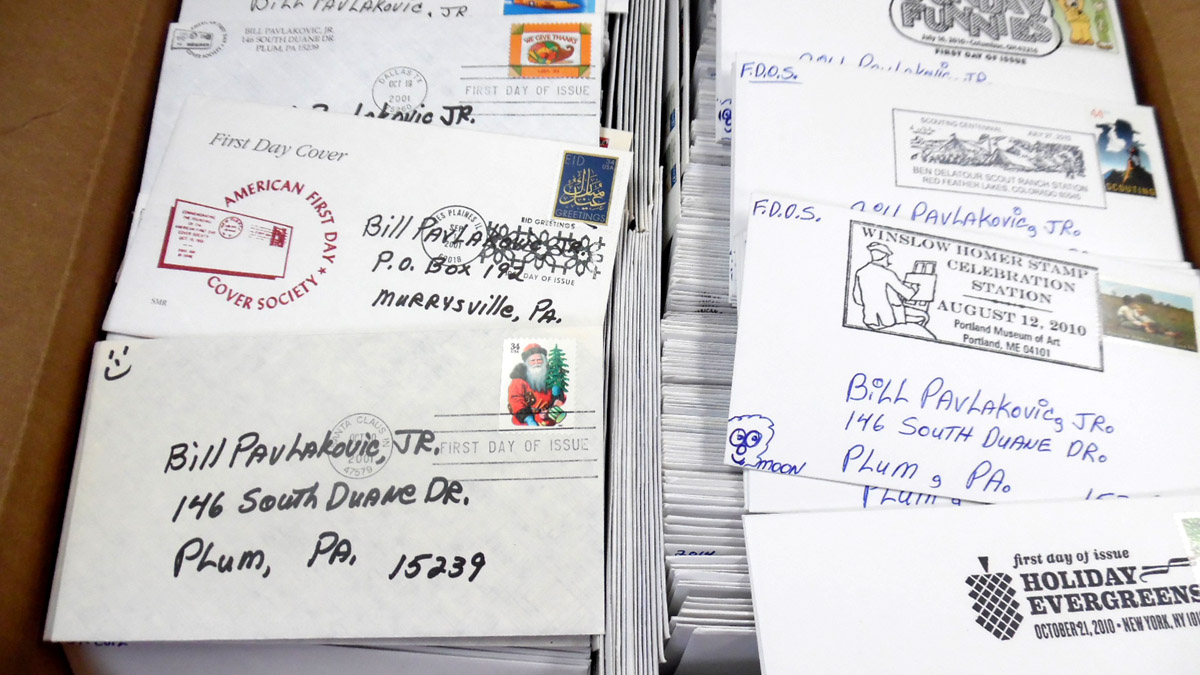 Bill PAVLAKOVIC, JR
BILL PAVLAKOVIC, JR
146 SOUTH DUANE DR
PLUM, PA 15239
WE GIVE THANKS
DALLAS TX
OCT 19
2001
FIRST DAY OF ISSUE
Pavlakovic JR.
First Day Cover
AMERICAN FIRST DAY
COVER SOCIETY
SMR
EID
34
USA
GREETINGS
عيد مبارك
DES PLAINES IL
2001
60018
EID GREETINGS
DAY OF ISSUE
Bill PAVLAKOVIC, JR.
P.O. Box 192
MURRYSVILLE, PA.
34
USA
SANTA CLAUS IN
OCT 10
2001
47579
FIRST DAY OF ISSUE
Bill PAVLAKOVIC, JR.
146 South DUANE DR.
PLum, PA. 15239
FUNNIES
July 16, 2010 • Columbus, OH 43216
FIRST DAY OF ISSUE
F.D.O.S.
Bill Pavlakovic, JR.
SCOUTING CENTENNIAL JULY 27, 2010
BEN DELATOUR SCOUT RANCH STATION
RED FEATHER LAKES, COLORADO 80545
SCOUTING
F.D.O.S.
Bill PAVLAKOVIC, JR.
WINSLOW HOMER STAMP
CELEBRATION
STATION
AUGUST 12, 2010
Portland Museum of Art
Portland, ME 04101
BiLL PAVLAKOVIC, JR.
146 SOUTH DUANE DR.
PLUM, PA.
MOON
PLUM,
first day of issue
HOLIDAY
EVERGREENS
OCTOBER 21, 2010 • NEW YORK, NY